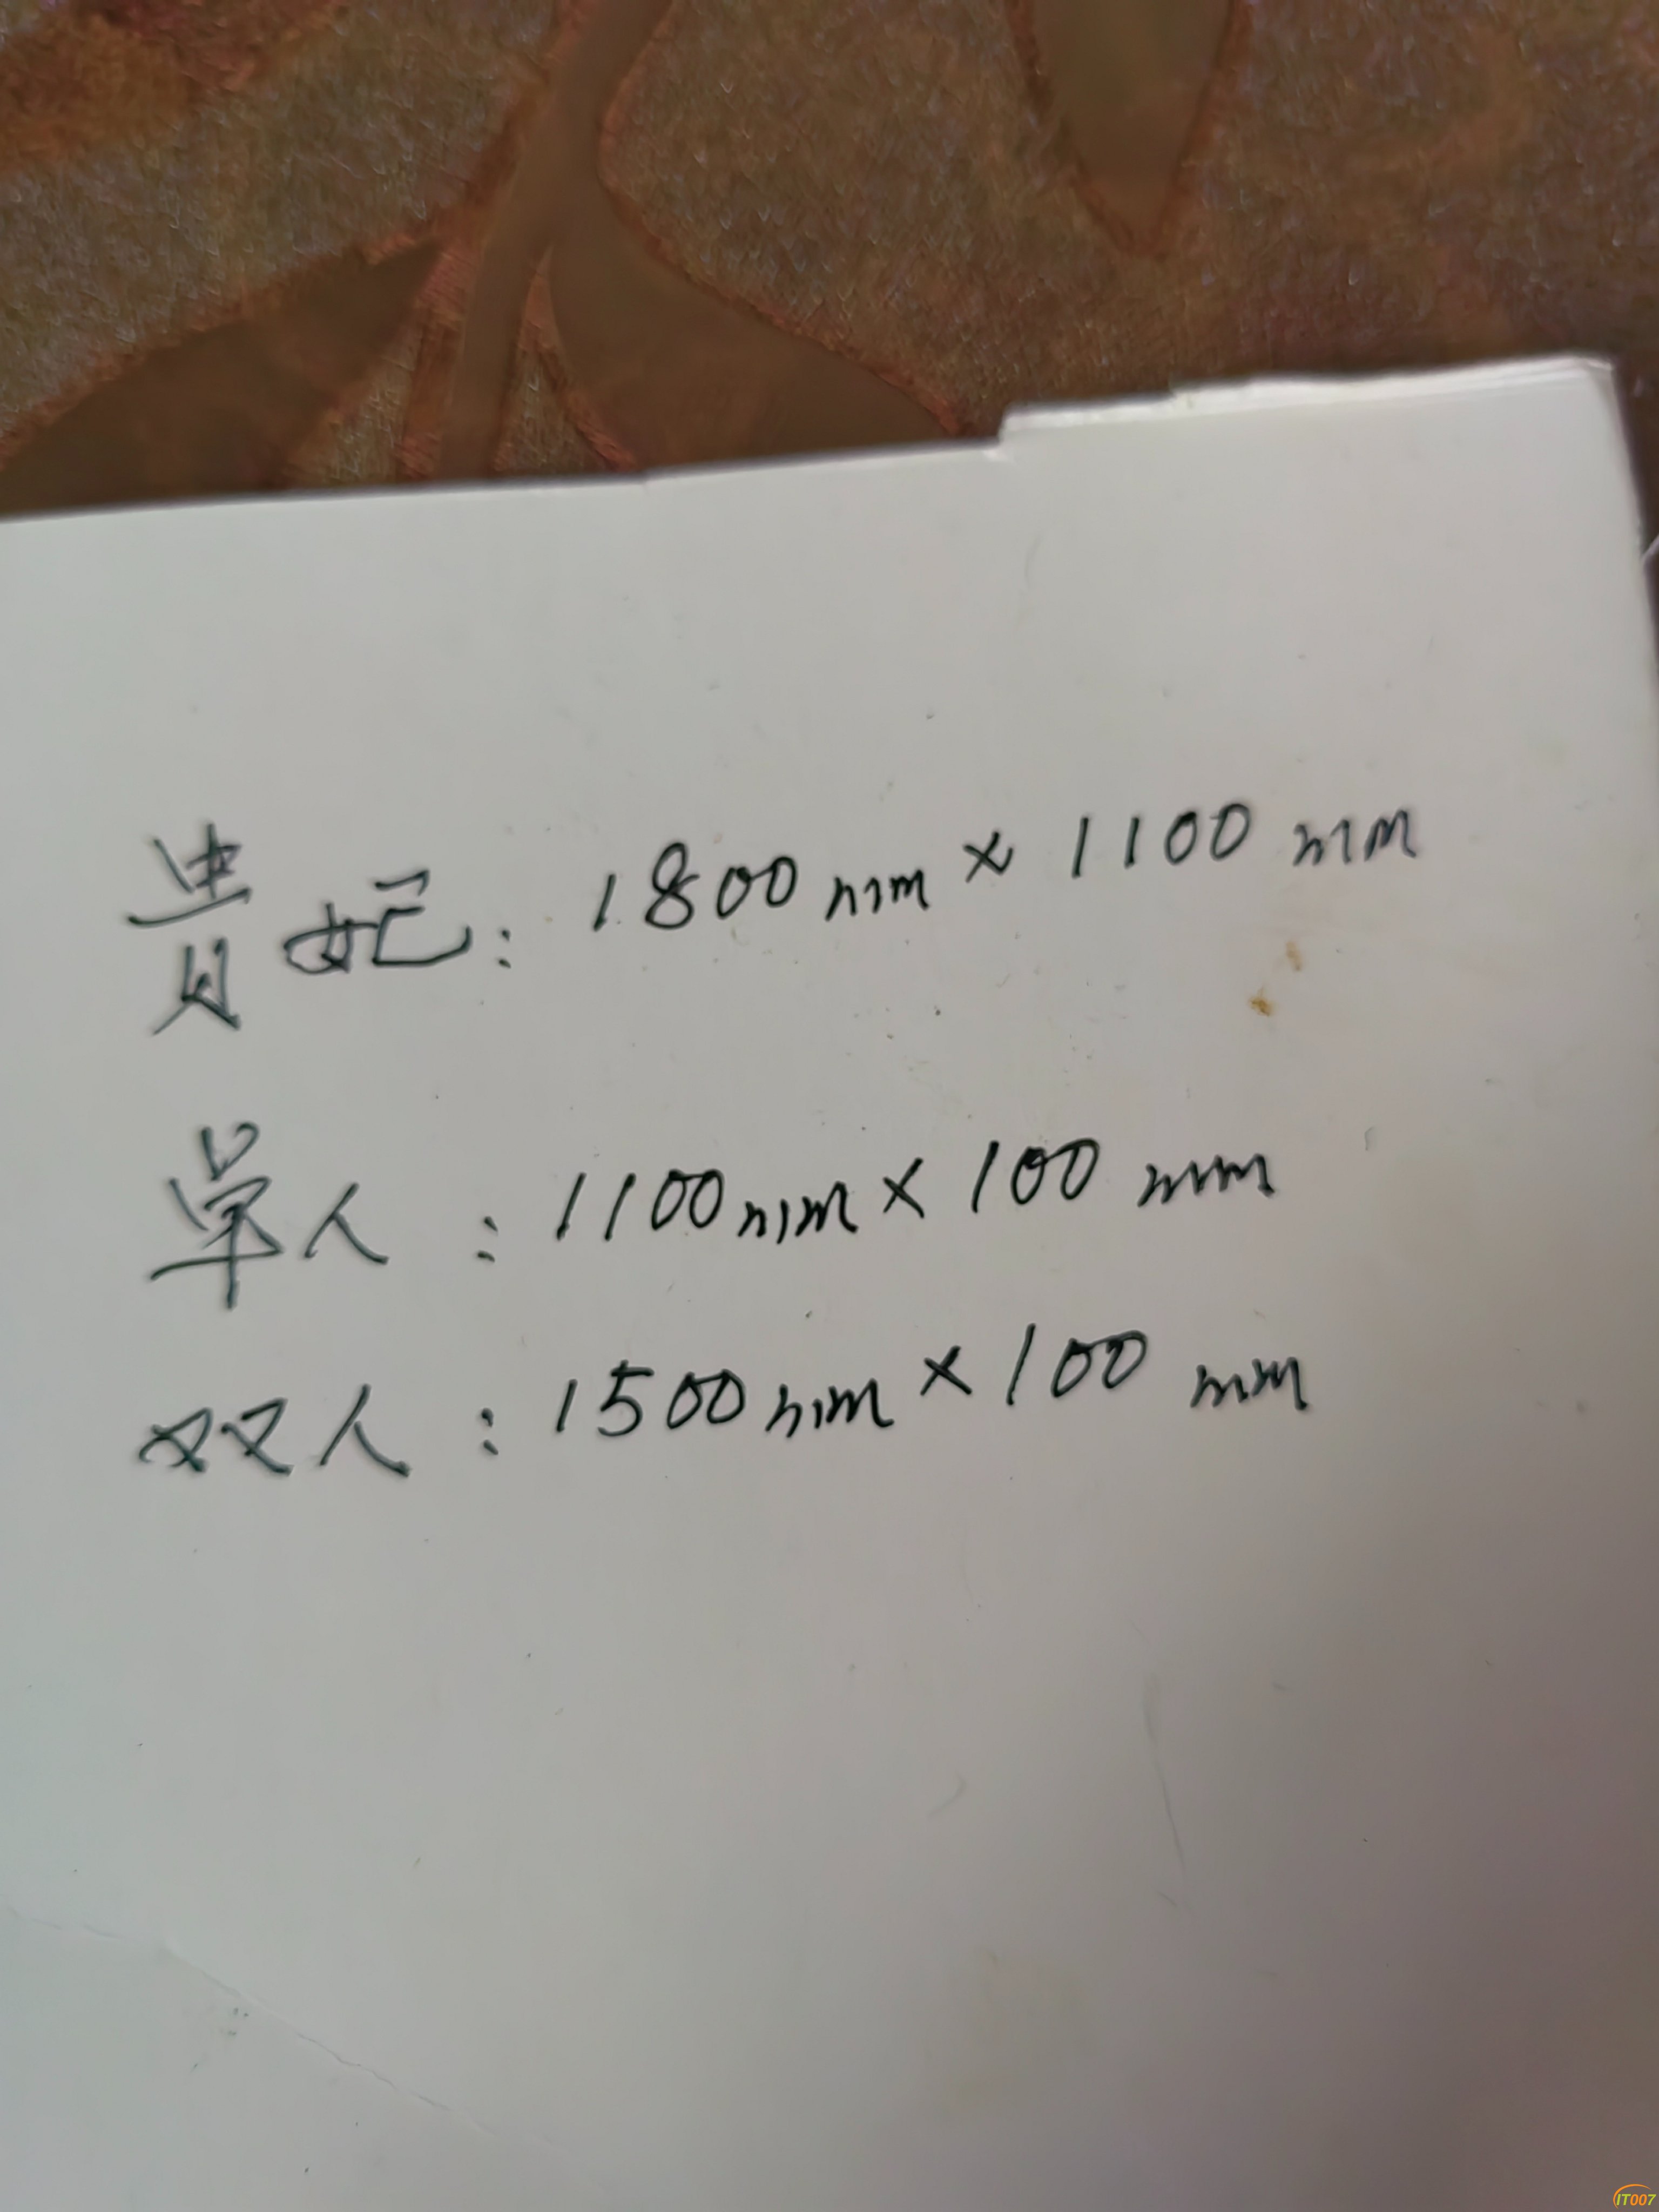 貴妃：1800mm×1100mm
單人：1100mm×100mm
双人：1500mm×100mm
IT007